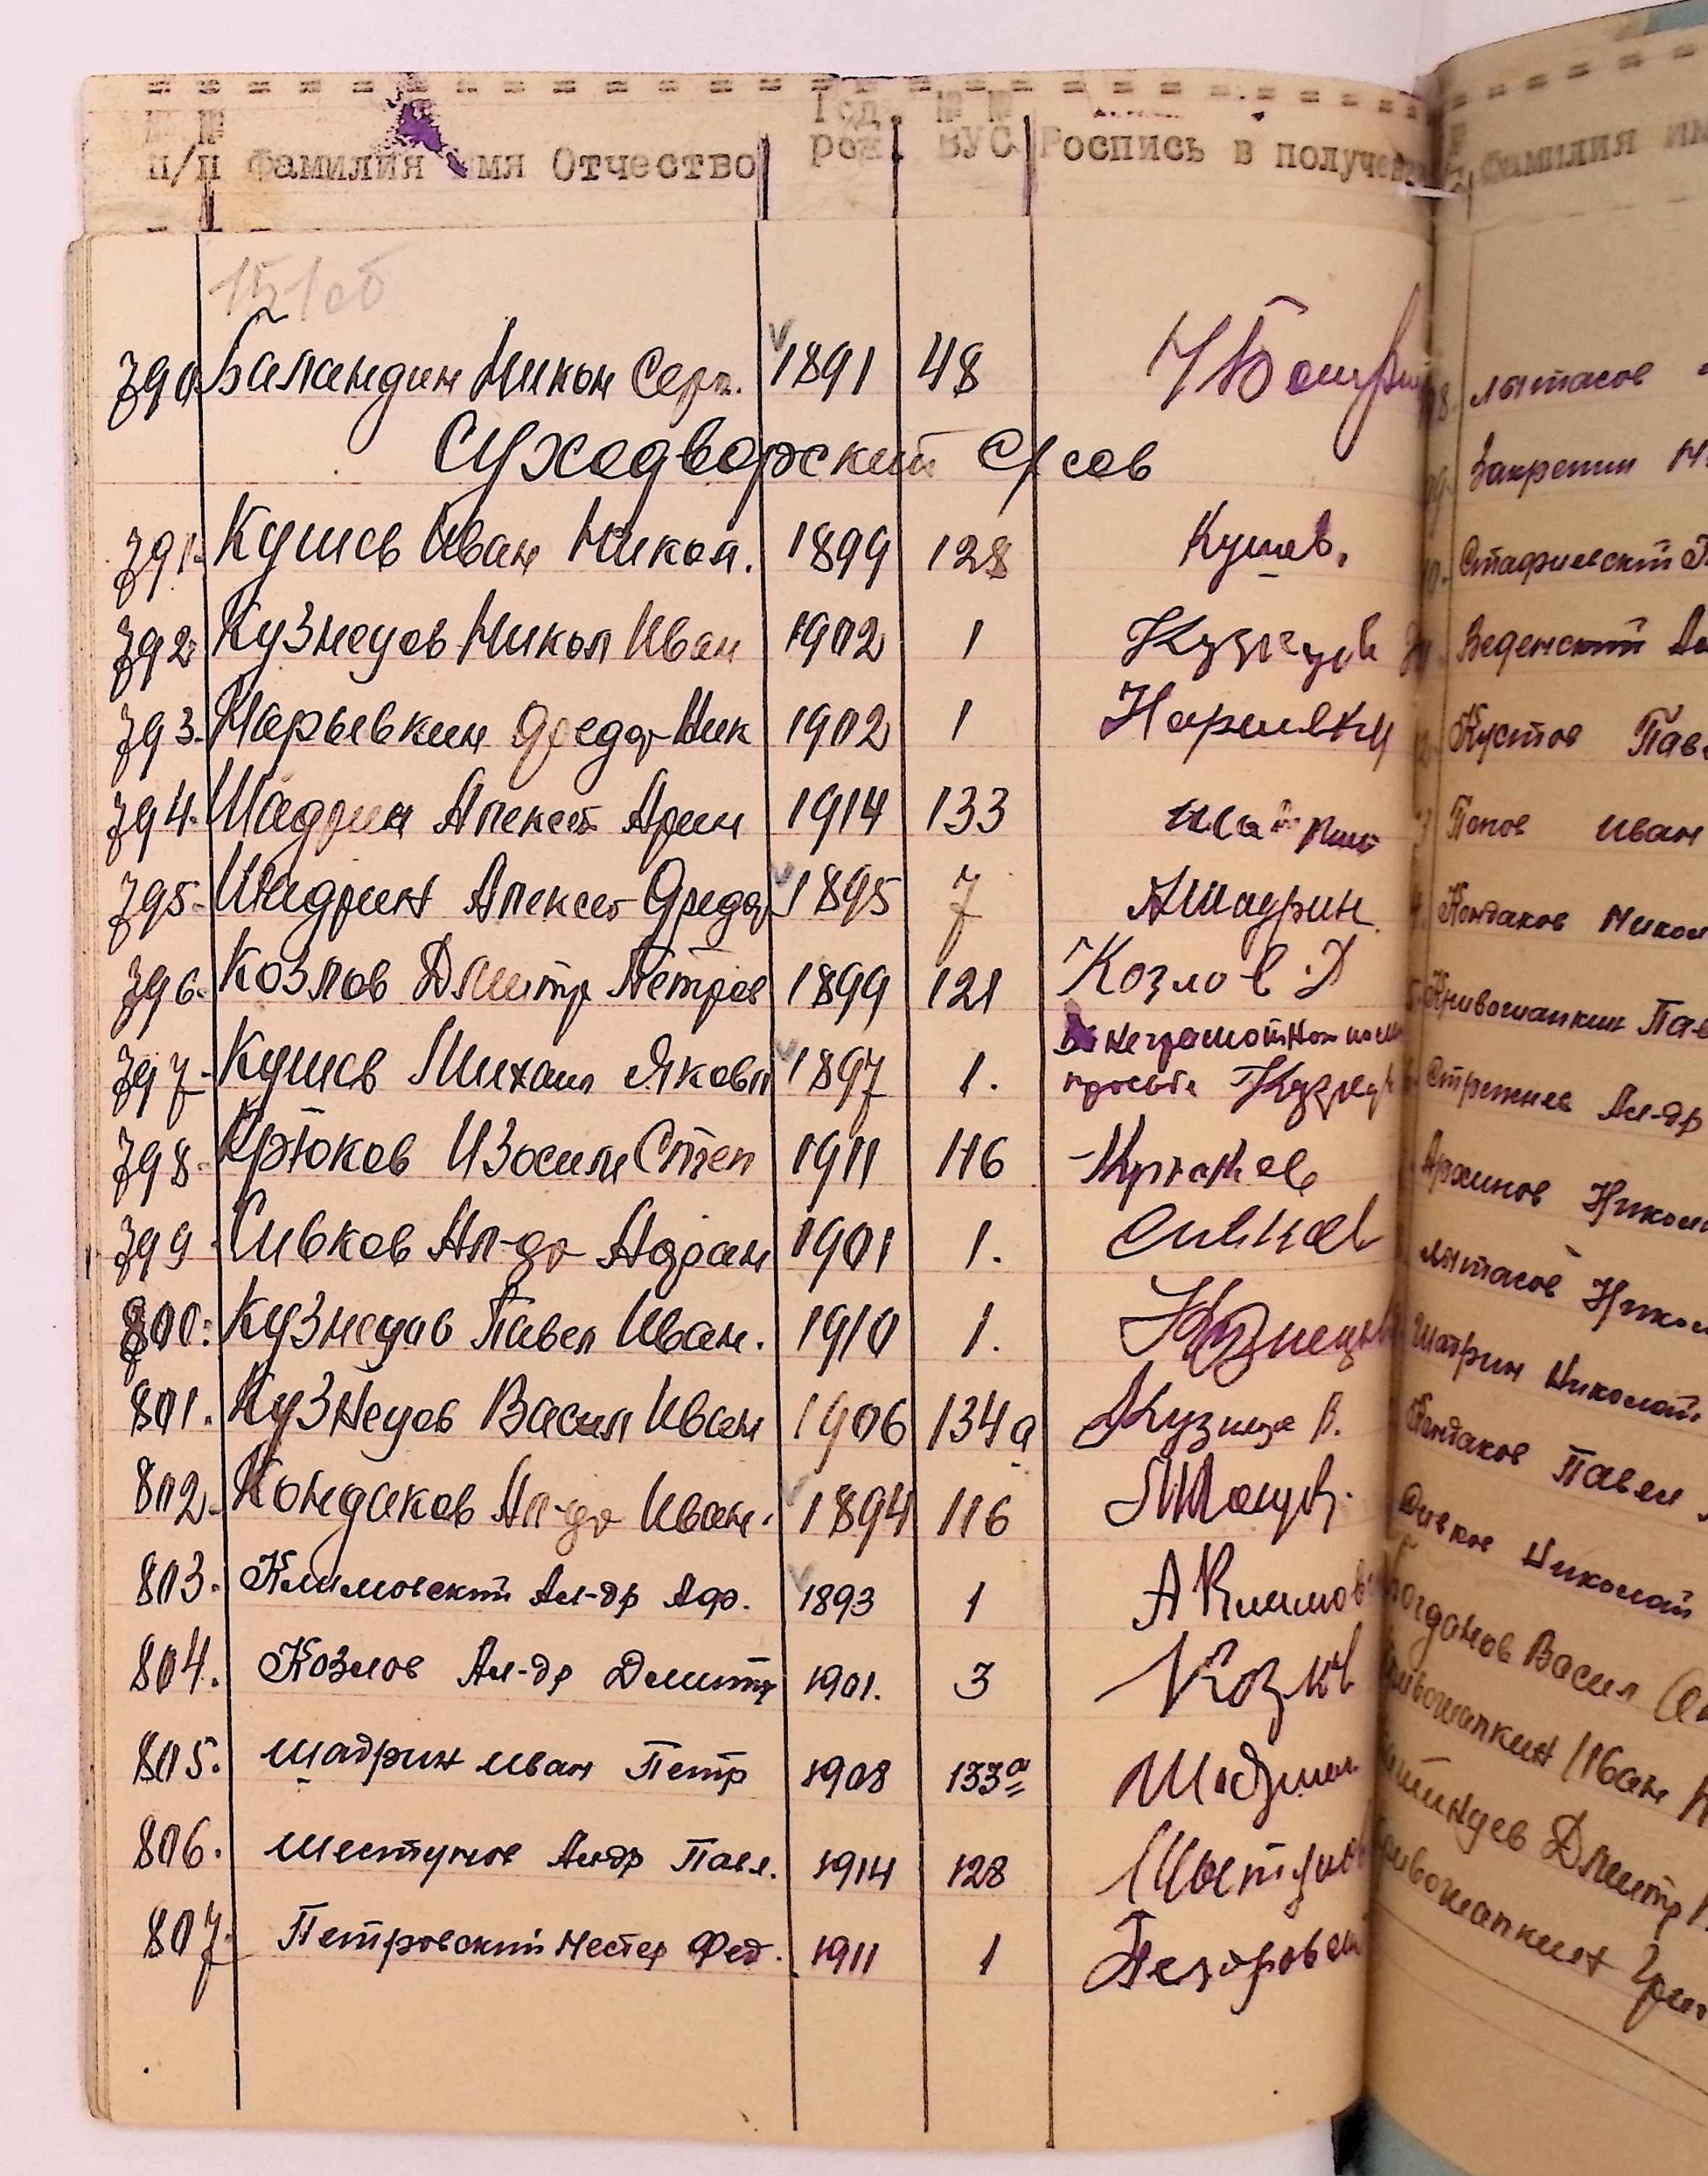 № № п/п Фамилия Имя Отчество Год рож. № № ВУС Роспись в получе
151об
790 Баландин Никон Серг. 1891 48
Суходворский с/сов
791. Кушев Иван Никол. 1899 128 Кушев.
792. Кузнецов Никол Иван 1902 1 Кузнецов
793. Нарывкин Федор Ник 1902 1
794. Шадрин Алексей Арин 1914 133
795. Шадрин Алексей Федор 1895 7 АШадрин
796. Козлов Дмитр Петров 1899 121 Козлов Д
797. Кушев Михаил Яковл 1897 1. неграмотнои
просьбе Кузнец
798. Крюков Изосим Степ 1911 116
799. Сивков Ал-др Адриан 1901 1. Сивков
800. Кузнецов Павел Иван. 1910 1. Кузнецов
801. Кузнецов Васил Иван 1906 134а
802. Кондаков Ал-др Иван. 1894 116
803. Климовский Ал-др Аф. 1893 1 АКлимов
804. Козлов Ал-др Дмитр 1901. 3 Козлов
805. Шадрин Иван Петр 1908 133а
806. Шестунов Ал-др Павл. 1914 128 Шестунов
807. Петровский Нестер Фед. 1911 1 Петровск
Фамилия Им
Лытасов
Закрепин
Веденский
Кустов Пав
Попов Иван
Кондаков Никол
Кривошапкин Пав
Стрежнев Ал-др
Архипов Никол
Лытасов Никол
Шадрин Николай
Кондаков Павел
Сивков Николай
Богданов Васил
Кривошапкин Иван
Дмитр
Кривошапкин Григ